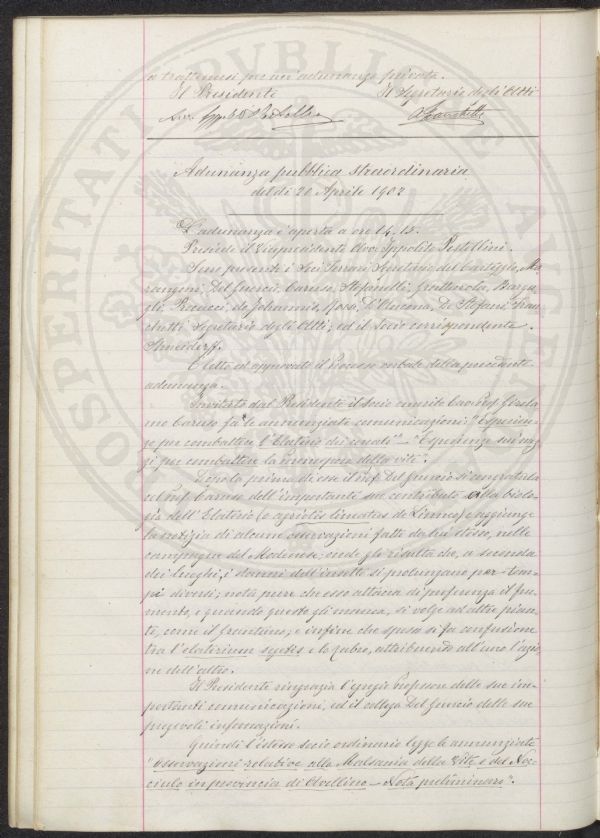 a trattenersi per un'adunanza privata.
Il Presidente Il Segretario degli Atti
Avv.
PROSPERITATI PVBLICAE AVGENDAE
Adunanza pubblica straordinaria
del dì 20 Aprile 1902
L'adunanza è aperta a ore 14,15.
Presiede il Vicepresidente Avv. Ippolito Pestellini.
Sono presenti i Soci Ferrari, del Ma-
rangoni, Del Guercio, Caruso, Stefanelli, Grattarola, Barga-
gli, Pecucci, de Johannis, Rosa, D'Ancona, De Stefani, Fran-
chetti, Segretario degli Atti; ed il Socio corrispondente
È letto ed approvato il processo verbale della precedente
adunanza.
Invitato dal Presidente il socio emerito Cav. Prof. Girola-
mo Caruso fa le annunziate comunicazioni: "Esperien-
ze per combattere l'Elaterio dei cereali" - "Esperienze sui mez-
zi per combattere la peronospora della vite".
Dopo la prima di esse il prof. Del Guercio si congratula
col prof. Caruso dell'importante suo contributo alla biolo-
gia dell'Elaterio (o agriotes lineatus di Linneo) e aggiunge
la notizia di alcune osservazioni fatte da lui stesso, nelle
campagne del Modenese; onde gli risulta che, a seconda
dei luoghi, i danni dell'insetto si prolungano per tem-
pi diversi; nota pure che esso attacca di preferenza il fru-
mento, e quando questo gli manca, si volge ad altre pian-
te, come il frantumo; e infine che spesso si fa confusione
tra l'elaterium segetis e lo zabro, attribuendo all'uno l'azio-
ne dell'altro.
Il Presidente ringrazia l'egregio Professore delle sue im-
portanti comunicazioni, ed il collega Del Guercio delle sue
pregevoli informazioni.
Quindi l'istesso socio ordinario legge le annunziate
"Osservazioni relative alla Malsania della Vite e del Noc-
ciuolo in provincia di Avellino - Nota preliminare".